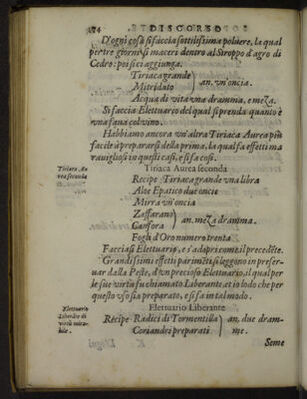 DISCORSO
D'ogni cosa si faccia sottilissima polvere, la qual
per tre giorni si maceri dentro al Siroppo d'agro di
Cedro: poi si ci aggiunga.
Tiriaca grande
Mitridato } an. vn'oncia.
Acqua di vita vna dramma, e meza.
Si faccia Elettuario del qual si prenda quanto è
vna faua col vino.
Habbiamo ancora vn'altra Tiriaca Aurea più
facile à prepararsi della prima, la qual fa effetti ma
rauigliosi in questi casi, e si fa così.
Tiriaca Aurea seconda
Recipe Tiriaca grande vna libra
Aloe Epatico due oncie
Mirra vn'oncia
Zaffarano
Canfora } an. meza dramma.
Fogli d'Oro numero trenta
Facciasi Elettuario, e s'adopri come il precedẽte.
Grandissimi effetti parimẽti si leggono in preser-
uar dalla Peste, d'vn precioso Elettuario, il qual per
le sue virtù fu chiamato Liberante, et io lodo che per
questo vso sia preparato, e si fa in tal modo.
Elettuario Liberante
Recipe Radici di Tormentilla
Coriandri preparati } an. due dram-
me.
Seme